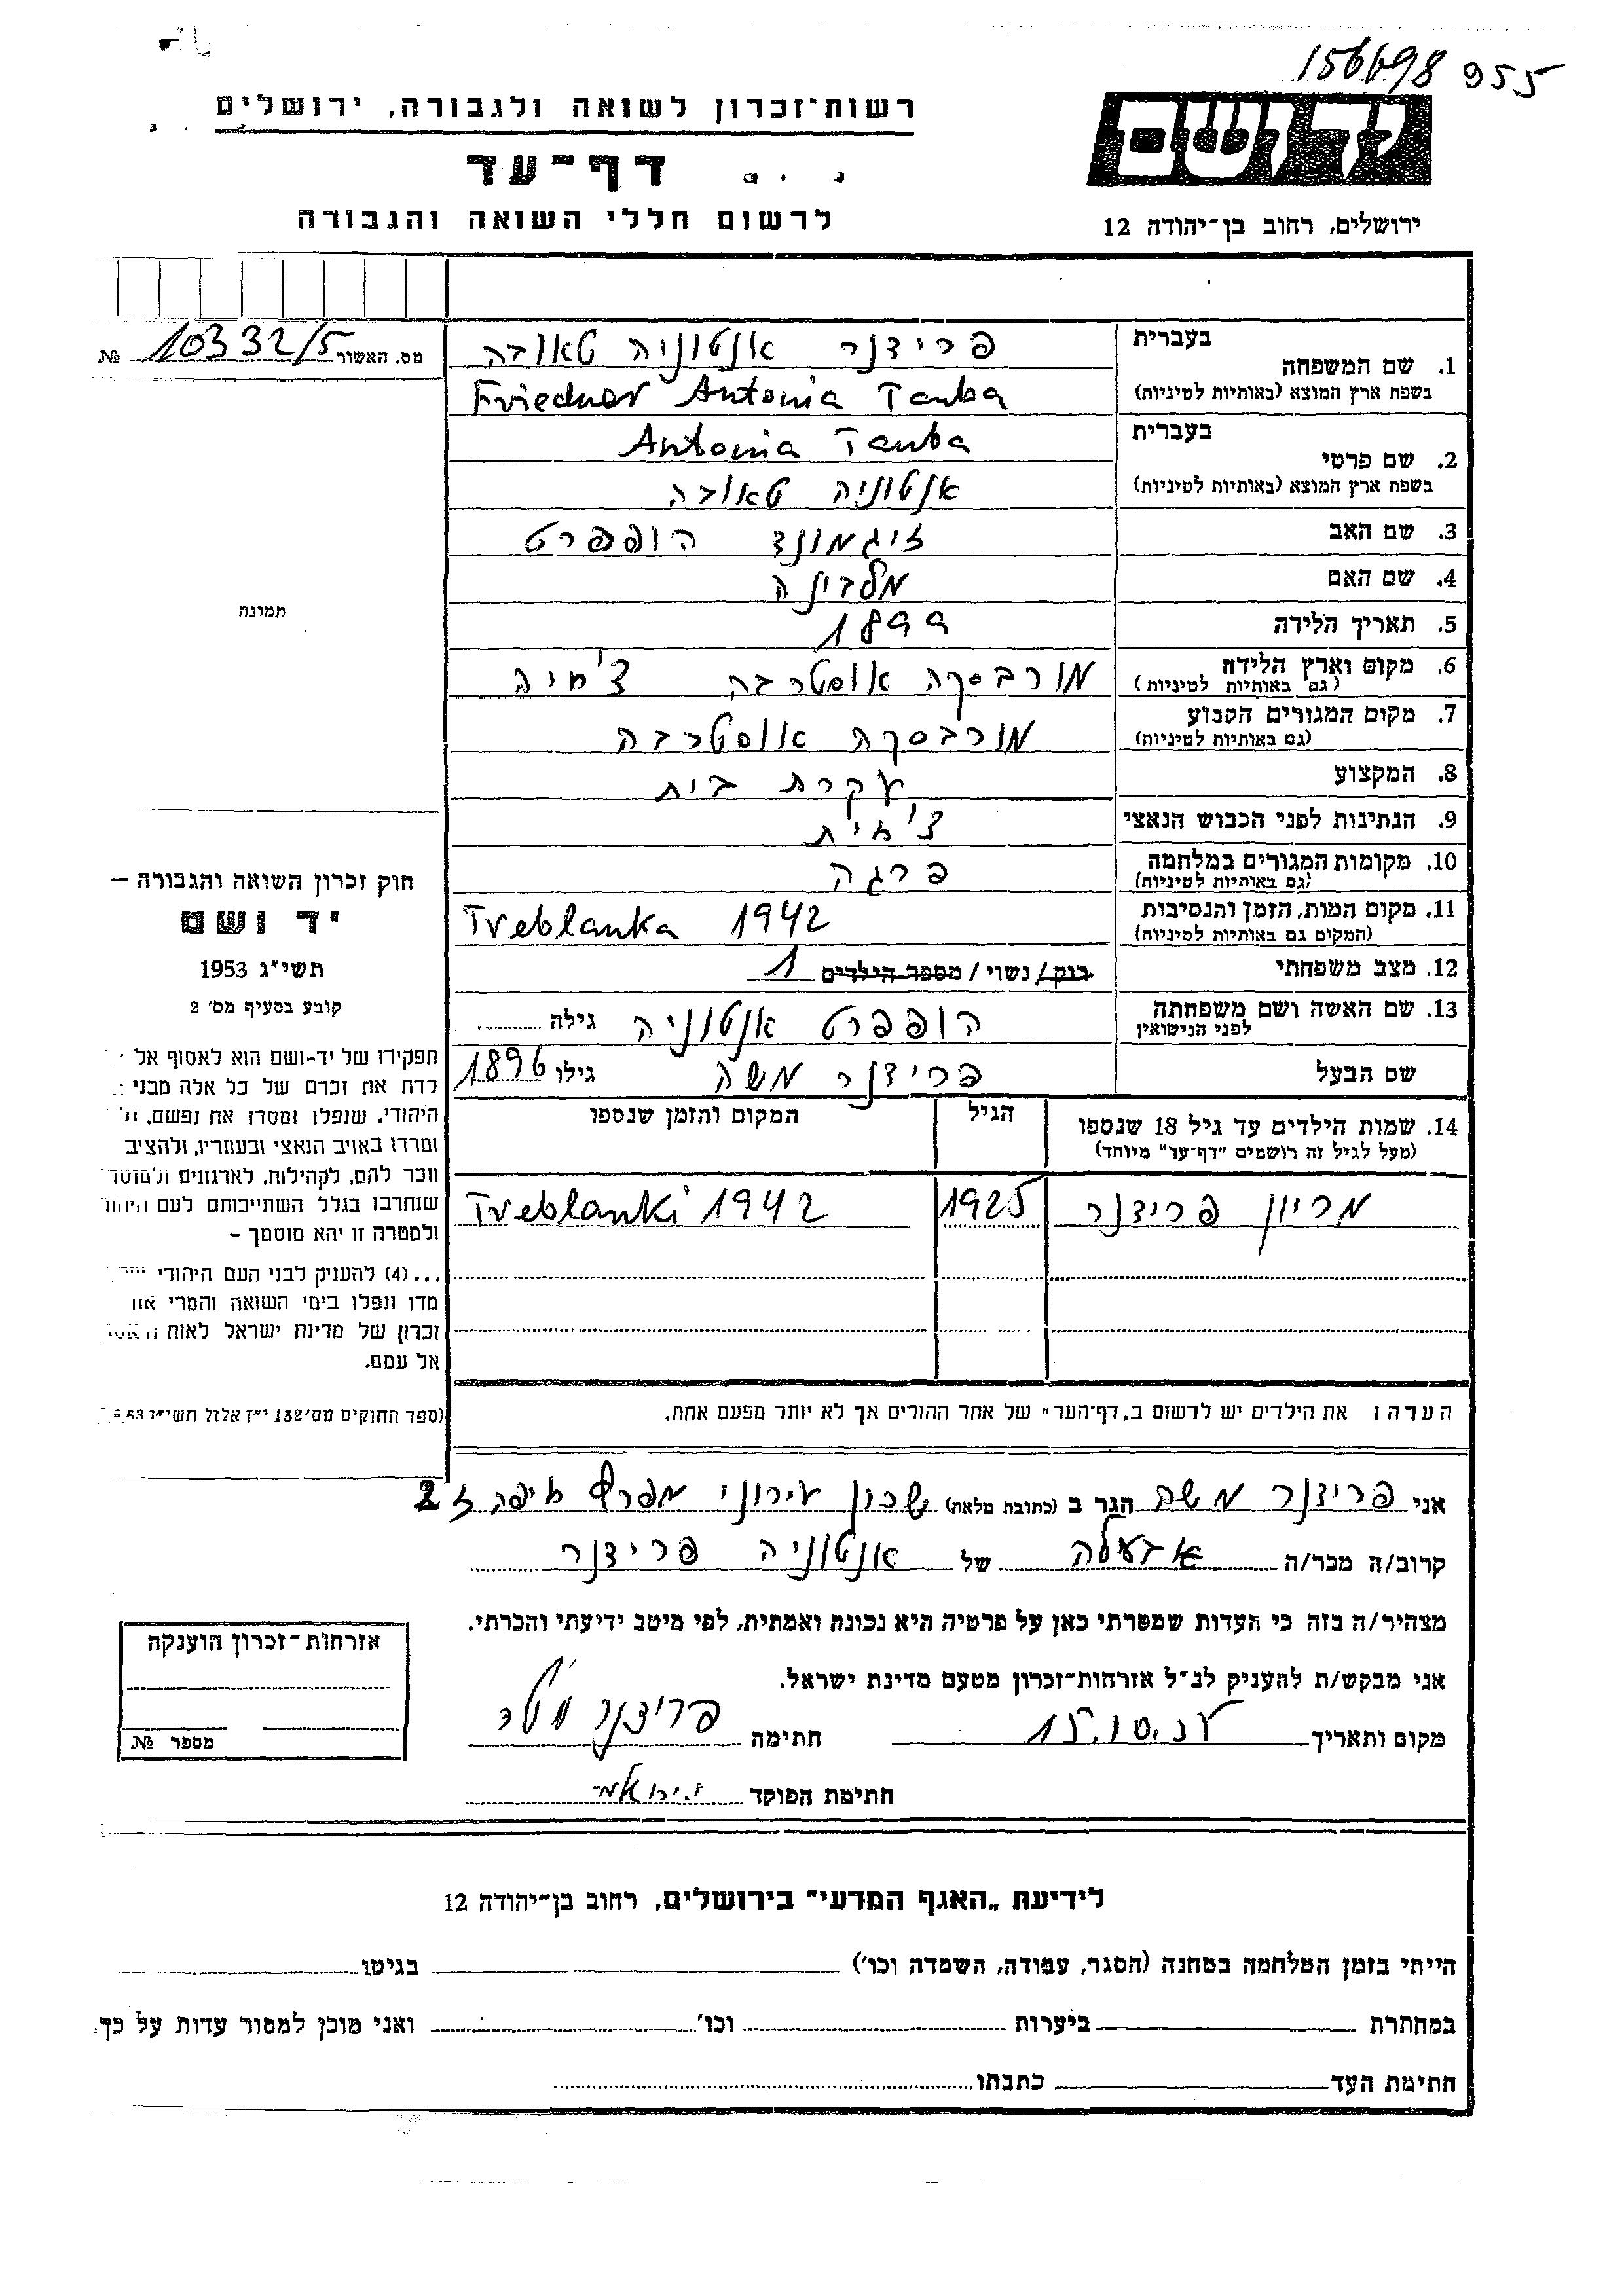 156698 955
רשות-זכרון לשואה ולגבורה, ירושלים
דף-עד
לרשום חללי השואה והגבורה
יד ושם
ירושלים, רחוב בן-יהודה 12
מס. האשור 10332/5 №
1. שם המשפחה
בעברית פרידנר אנטוניה טאובה
בשפת ארץ המוצא (באותיות לטיניות) Friedner Antonia Tauba
2. שם פרטי
בעברית Antonia Tauba
בשפת ארץ המוצא (באותיות לטיניות) אנטוניה טאובה
3. שם האב זיגמונד הופפרט
4. שם האם מלבינה
5. תאריך הלידה 1899
6. מקום וארץ הלידה מורבסקה אוסטרבה צ'חיה
(גם באותיות לטיניות)
7. מקום המגורים הקבוע מורבסקה אוסטרבה
(גם באותיות לטיניות)
8. המקצוע עקרת בית
9. הנתינות לפני הכבוש הנאצי צ'חית
10. מקומות המגורים במלחמה פרגה
(גם באותיות לטיניות)
11. מקום המות, הזמן והנסיבות Treblanka 1942
(המקום גם באותיות לטיניות)
12. מצב משפחתי רווק / נשוי / מספר הילדים 1
13. שם האשה ושם משפחתה הופפרט אנטוניה גילה
לפני הנישואין
שם הבעל פרידנר משה גילו 1896
14. שמות הילדים עד גיל 18 שנספו הגיל המקום והזמן שנספו
(מעל לגיל זה רושמים "דף-עד" מיוחד)
מריון פרידנר 1925 Treblanki 1942
הערה: את הילדים יש לרשום ב„דף-העד" של אחד ההורים אך לא יותר מפעם אחת.
תמונה
חוק זכרון השואה והגבורה –
יד ושם
תשי"ג 1953
קובע בסעיף מס' 2
תפקידו של יד-ושם הוא לאסוף אל
לדת את זכרם של כל אלה מבני
היהודי, שנפלו ומסרו את נפשם,
ומרדו באויב הנאצי ובעוזריו, ולהציב
וזכר להם, לקהילות, לארגונים ולמוסד
שנחרבו בגלל השתייכותם לעם היהוד
ולמטרה זו יהא מוסמך –
...(4) להעניק לבני העם היהודי
מדו ונפלו בימי השואה והמרי את
זכרון של מדינת ישראל לאות
אל עמם.
(ספר החוקים מס' 132 י"ז אלול תשי"ג
אני פרידנר משה הגר ב (כתובת מלאה) שכון עירוני מפרץ חיפה ז 2
קרוב/ה מכר/ה של אנטוניה פרידנר
מצהיר/ה בזה כי העדות שמסרתי כאן על פרטיה היא נכונה ואמתית, לפי מיטב ידיעתי והכרתי.
אני מבקש/ת להעניק לנ"ל אזרחות-זכרון מטעם מדינת ישראל.
מקום ותאריך 15.10. חתימה פרידנר
חתימת הפוקד
אזרחות-זכרון הוענקה
מספר №
לידיעת „האגף המדעי" בירושלים, רחוב בן-יהודה 12
הייתי בזמן המלחמה במחנה (הסגר, עבודה, השמדה וכו') בגיטו
במחתרת ביערות וכו' ואני מוכן למסור עדות על כך
חתימת העד כתבתו